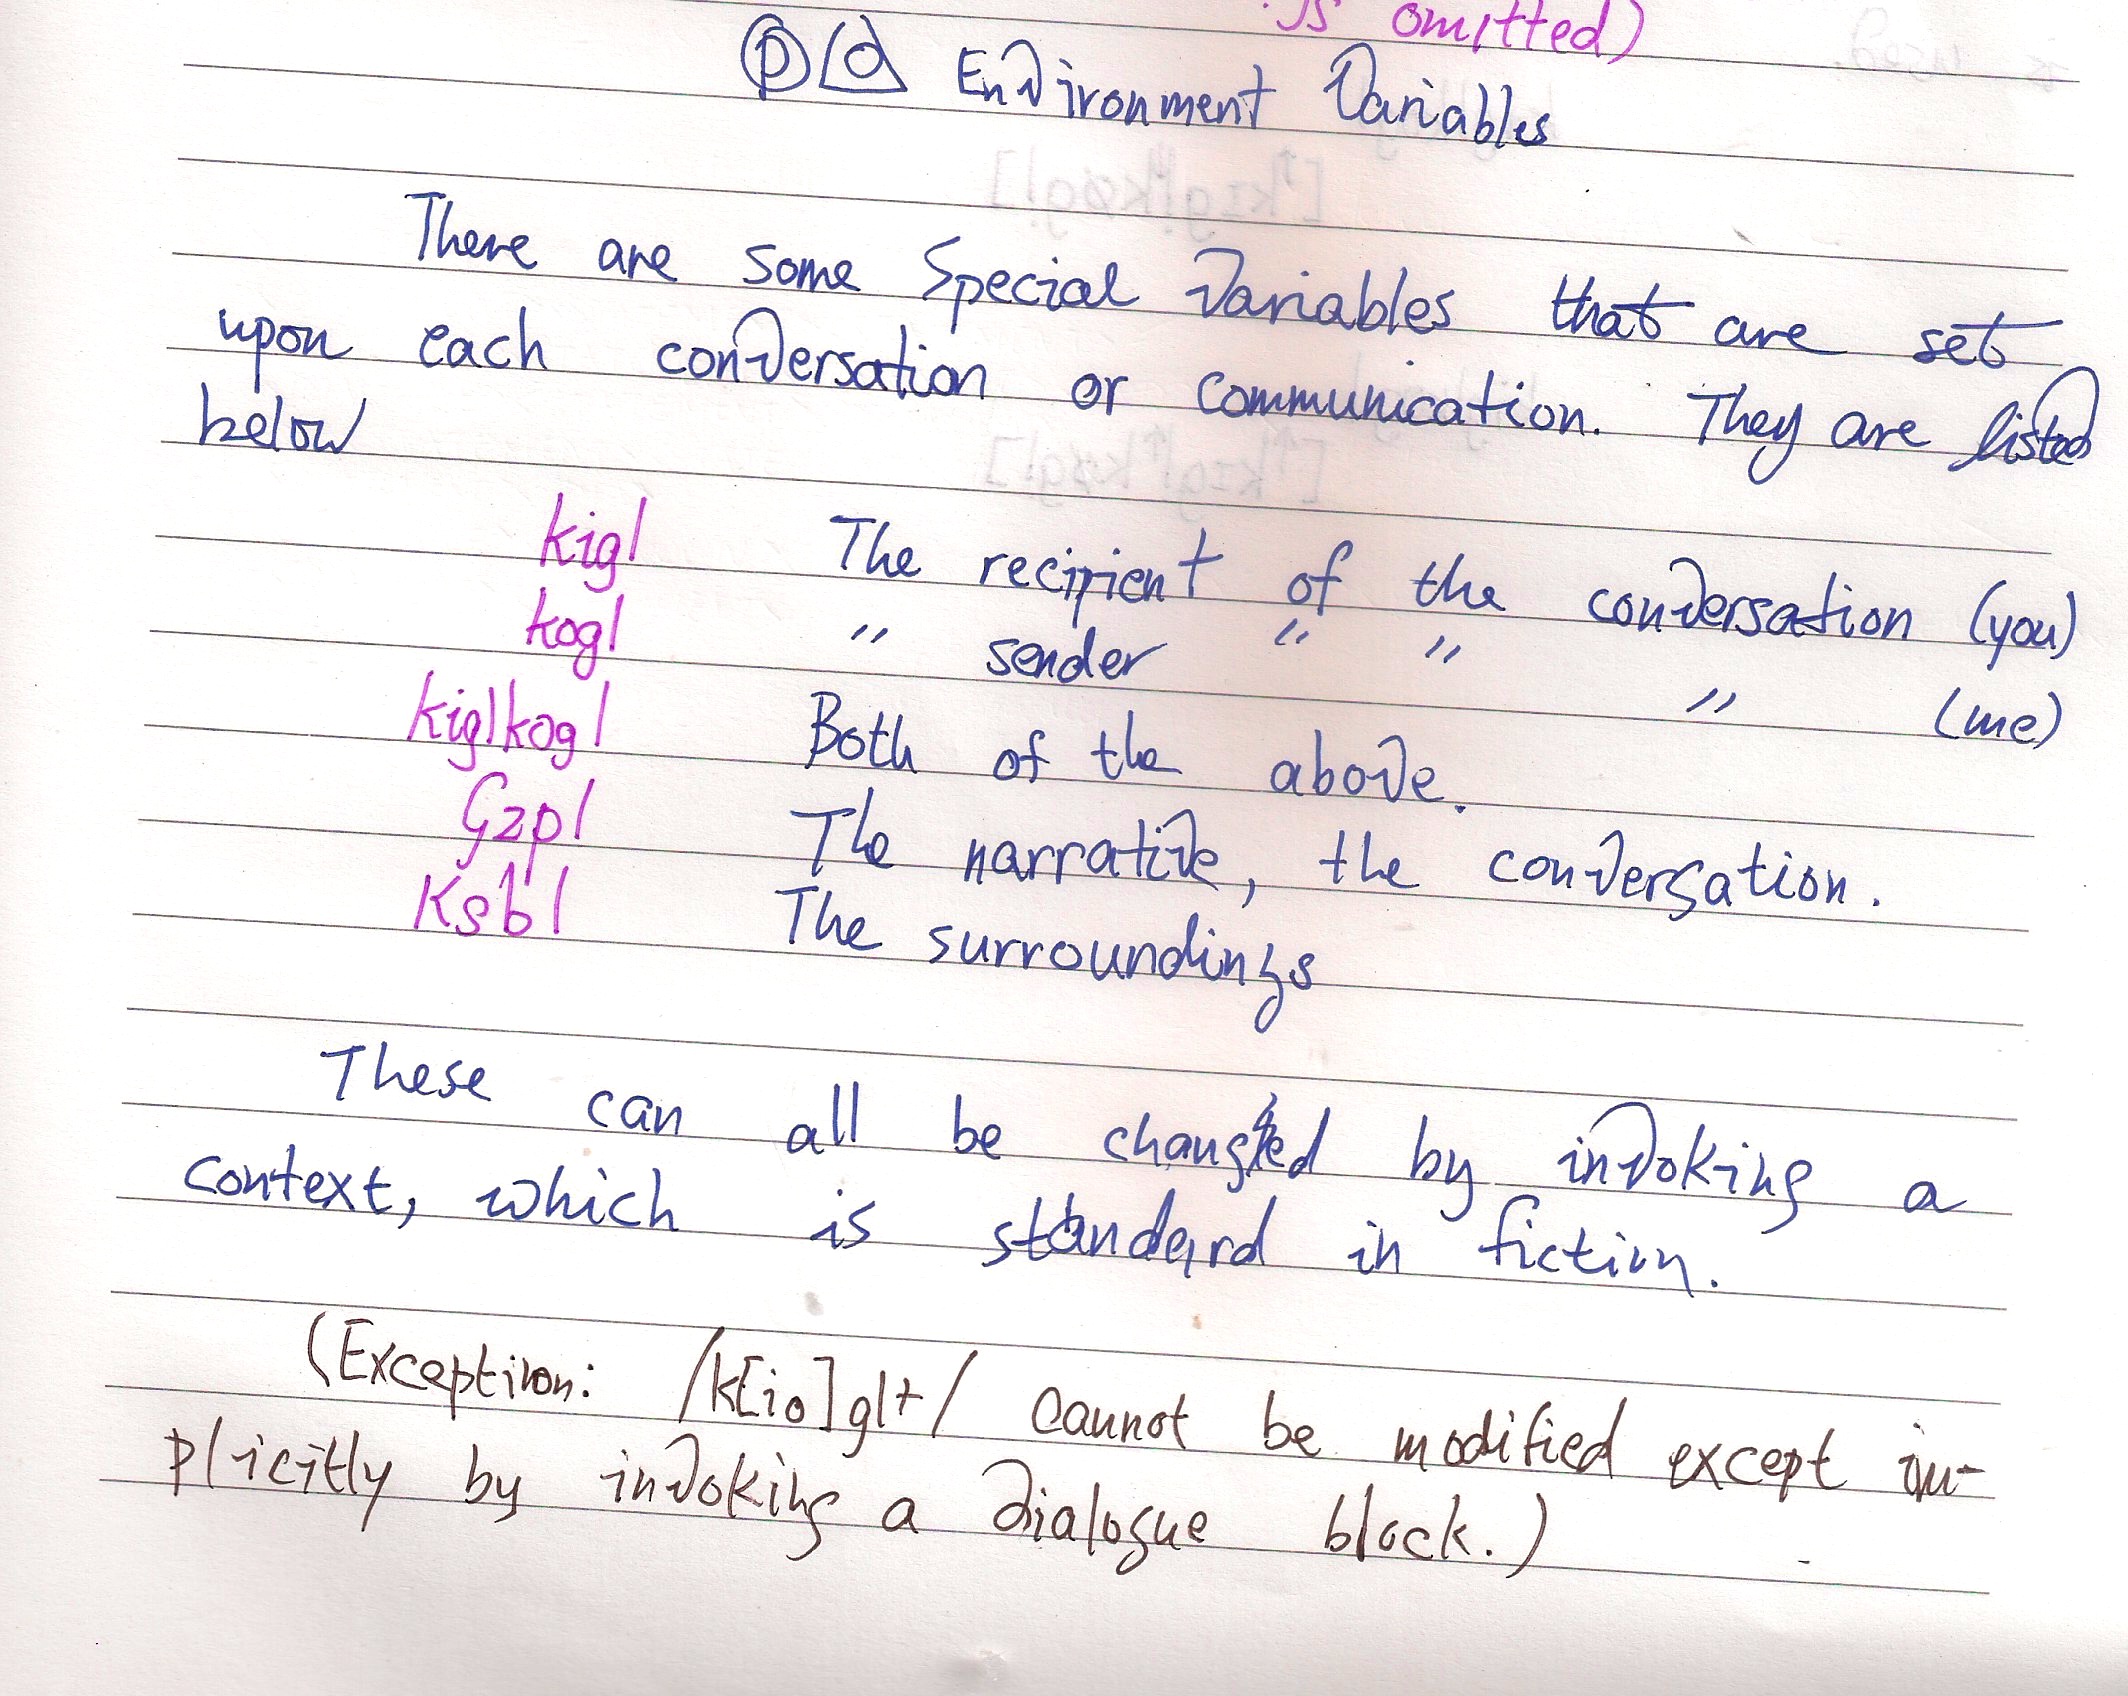 is omitted)
p a Environment Variables
There are some special variables that are set
upon each conversation or communication. They are listed
below
kig| The recipient of the conversation (you)
kog| " sender " " " (me)
kig|kog| Both of the above.
Gzp| The narrative, the conversation.
Ksb| The surroundings
These can all be changed by invoking a
context, which is standard in fiction.
(Exception: /k[io]g|+/ cannot be modified except im-
plicitly by invoking a dialogue block.)